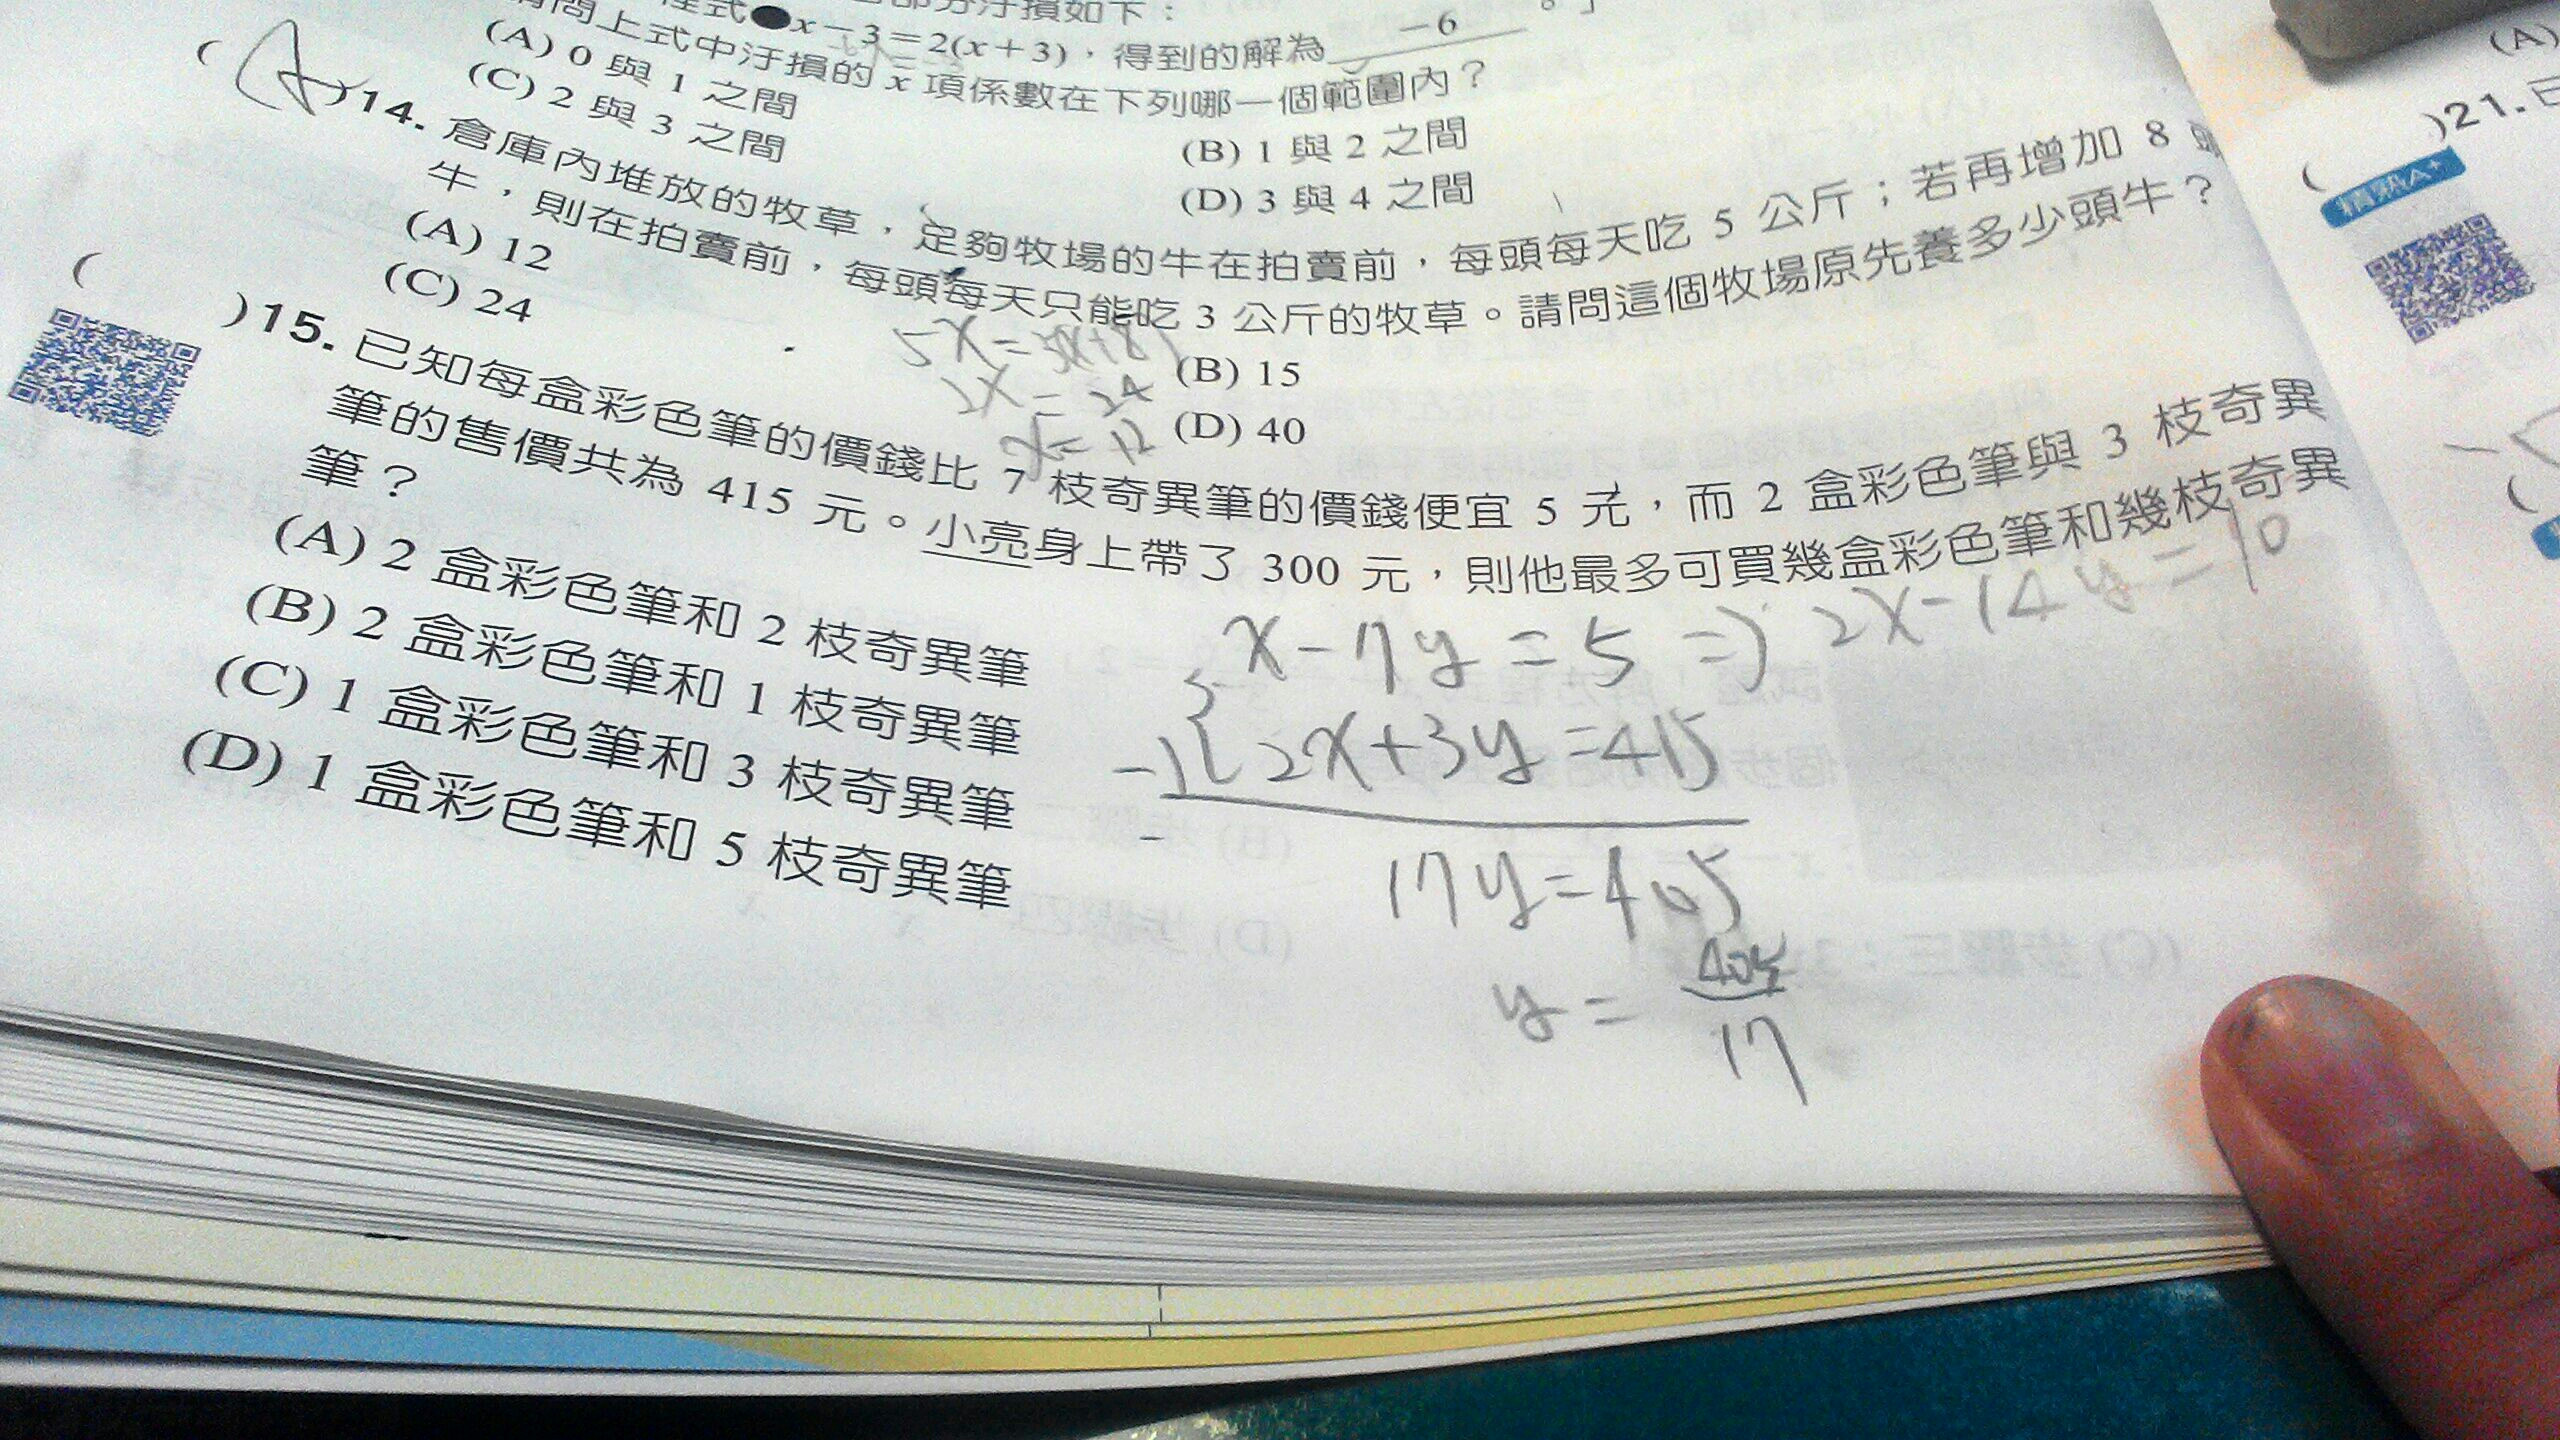 程式●x－3＝2(x＋3)，得到的解為 －6 。」
請問上式中汙損的 x 項係數在下列哪一個範圍內？
(A) 0 與 1 之間
(B) 1 與 2 之間
(C) 2 與 3 之間
(D) 3 與 4 之間
( A )14. 倉庫內堆放的牧草，足夠牧場的牛在拍賣前，每頭每天吃 5 公斤；若再增加 8
牛，則在拍賣前，每頭每天只能吃 3 公斤的牧草。請問這個牧場原先養多少頭牛？
(A) 12
(B) 15
(C) 24
(D) 40
2x = 24
x = 12
( )15. 已知每盒彩色筆的價錢比 7 枝奇異筆的價錢便宜 5 元，而 2 盒彩色筆與 3 枝奇異
筆的售價共為 415 元。小亮身上帶了 300 元，則他最多可買幾盒彩色筆和幾枝奇異
筆？
(A) 2 盒彩色筆和 2 枝奇異筆
(B) 2 盒彩色筆和 1 枝奇異筆
(C) 1 盒彩色筆和 3 枝奇異筆
(D) 1 盒彩色筆和 5 枝奇異筆
x－7y = 5 ⇒ 2x－14y = 10
2x+3y = 415
17y = 405
y = 405/17
(A)
( )21. 已
精熟A+